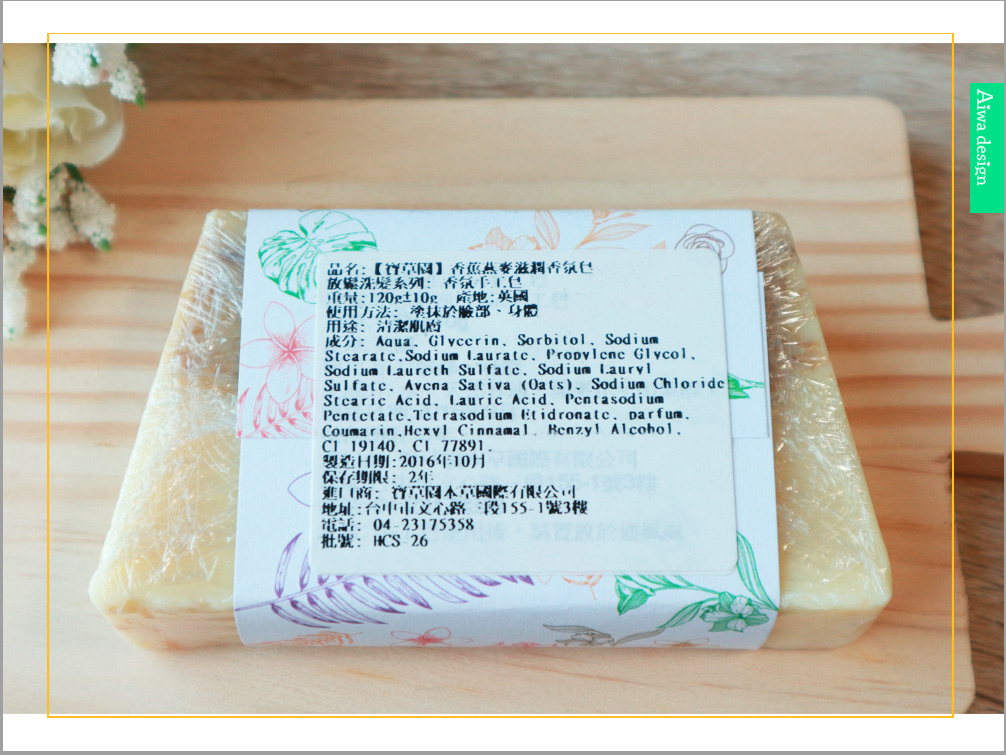 Aiwa design
品名:【寶草園】香蕉燕麥滋潤香氛皂
放鬆洗髮系列: 香氛手工皂
重量:120g±10g 產地:英國
使用方法: 塗抹於臉部、身體
用途: 清潔肌膚
成分: Aqua, Glycerin, Sorbitol, Sodium
Stearate,Sodium Laurate, Propylene Glycol,
Sodium Laureth Sulfate, Sodium Lauryl
Sulfate, Avena Sativa (Oats), Sodium Chloride
Stearic Acid, Lauric Acid, Pentasodium
Pentetate,Tetrasodium Etidronate, parfum,
Coumarin,Hexyl Cinnamal, Benzyl Alcohol,
CI 19140, CI 77891,
製造日期:2016年10月
保存期限: 2年
進口商: 寶草園本草國際有限公司
地址:台中市文心路三段155-1號3樓
電話: 04-23175358
批號: HCS-26